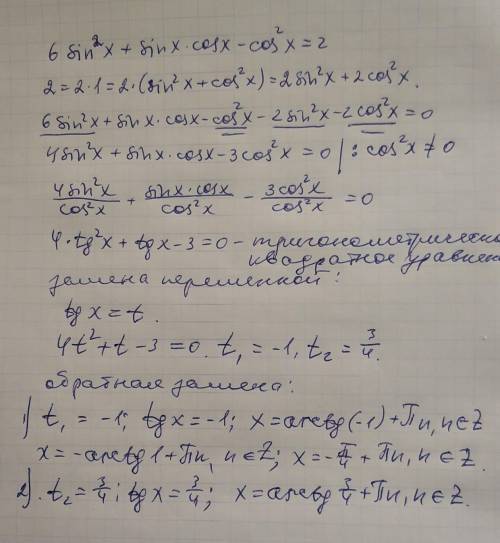 6 sin²x + sinx · cosx - cos²x = 2
2 = 2·1 = 2·(sin²x + cos²x) = 2sin²x + 2cos²x.
6 sin²x + sinx · cosx - cos²x - 2sin²x - 2cos²x = 0
4sin²x + sinx · cosx - 3cos²x = 0 | : cos²x ≠ 0
4sin²x/cos²x + sinx·cosx/cos²x - 3cos²x/cos²x = 0
4·tg²x + tgx - 3 = 0 - тригонометрическо
квадратное уравнен
замена переменной:
tgx = t.
4t² + t - 3 = 0. t₁ = -1, t₂ = 3/4.
обратная замена:
1) t₁ = -1; tgx = -1; x = arctg(-1) + πn, n∈Z
x = -arctg1 + πn, n∈Z; x = -π/4 + πn, n∈Z.
2). t₂ = 3/4; tgx = 3/4; x = arctg 3/4 + πn, n∈Z.